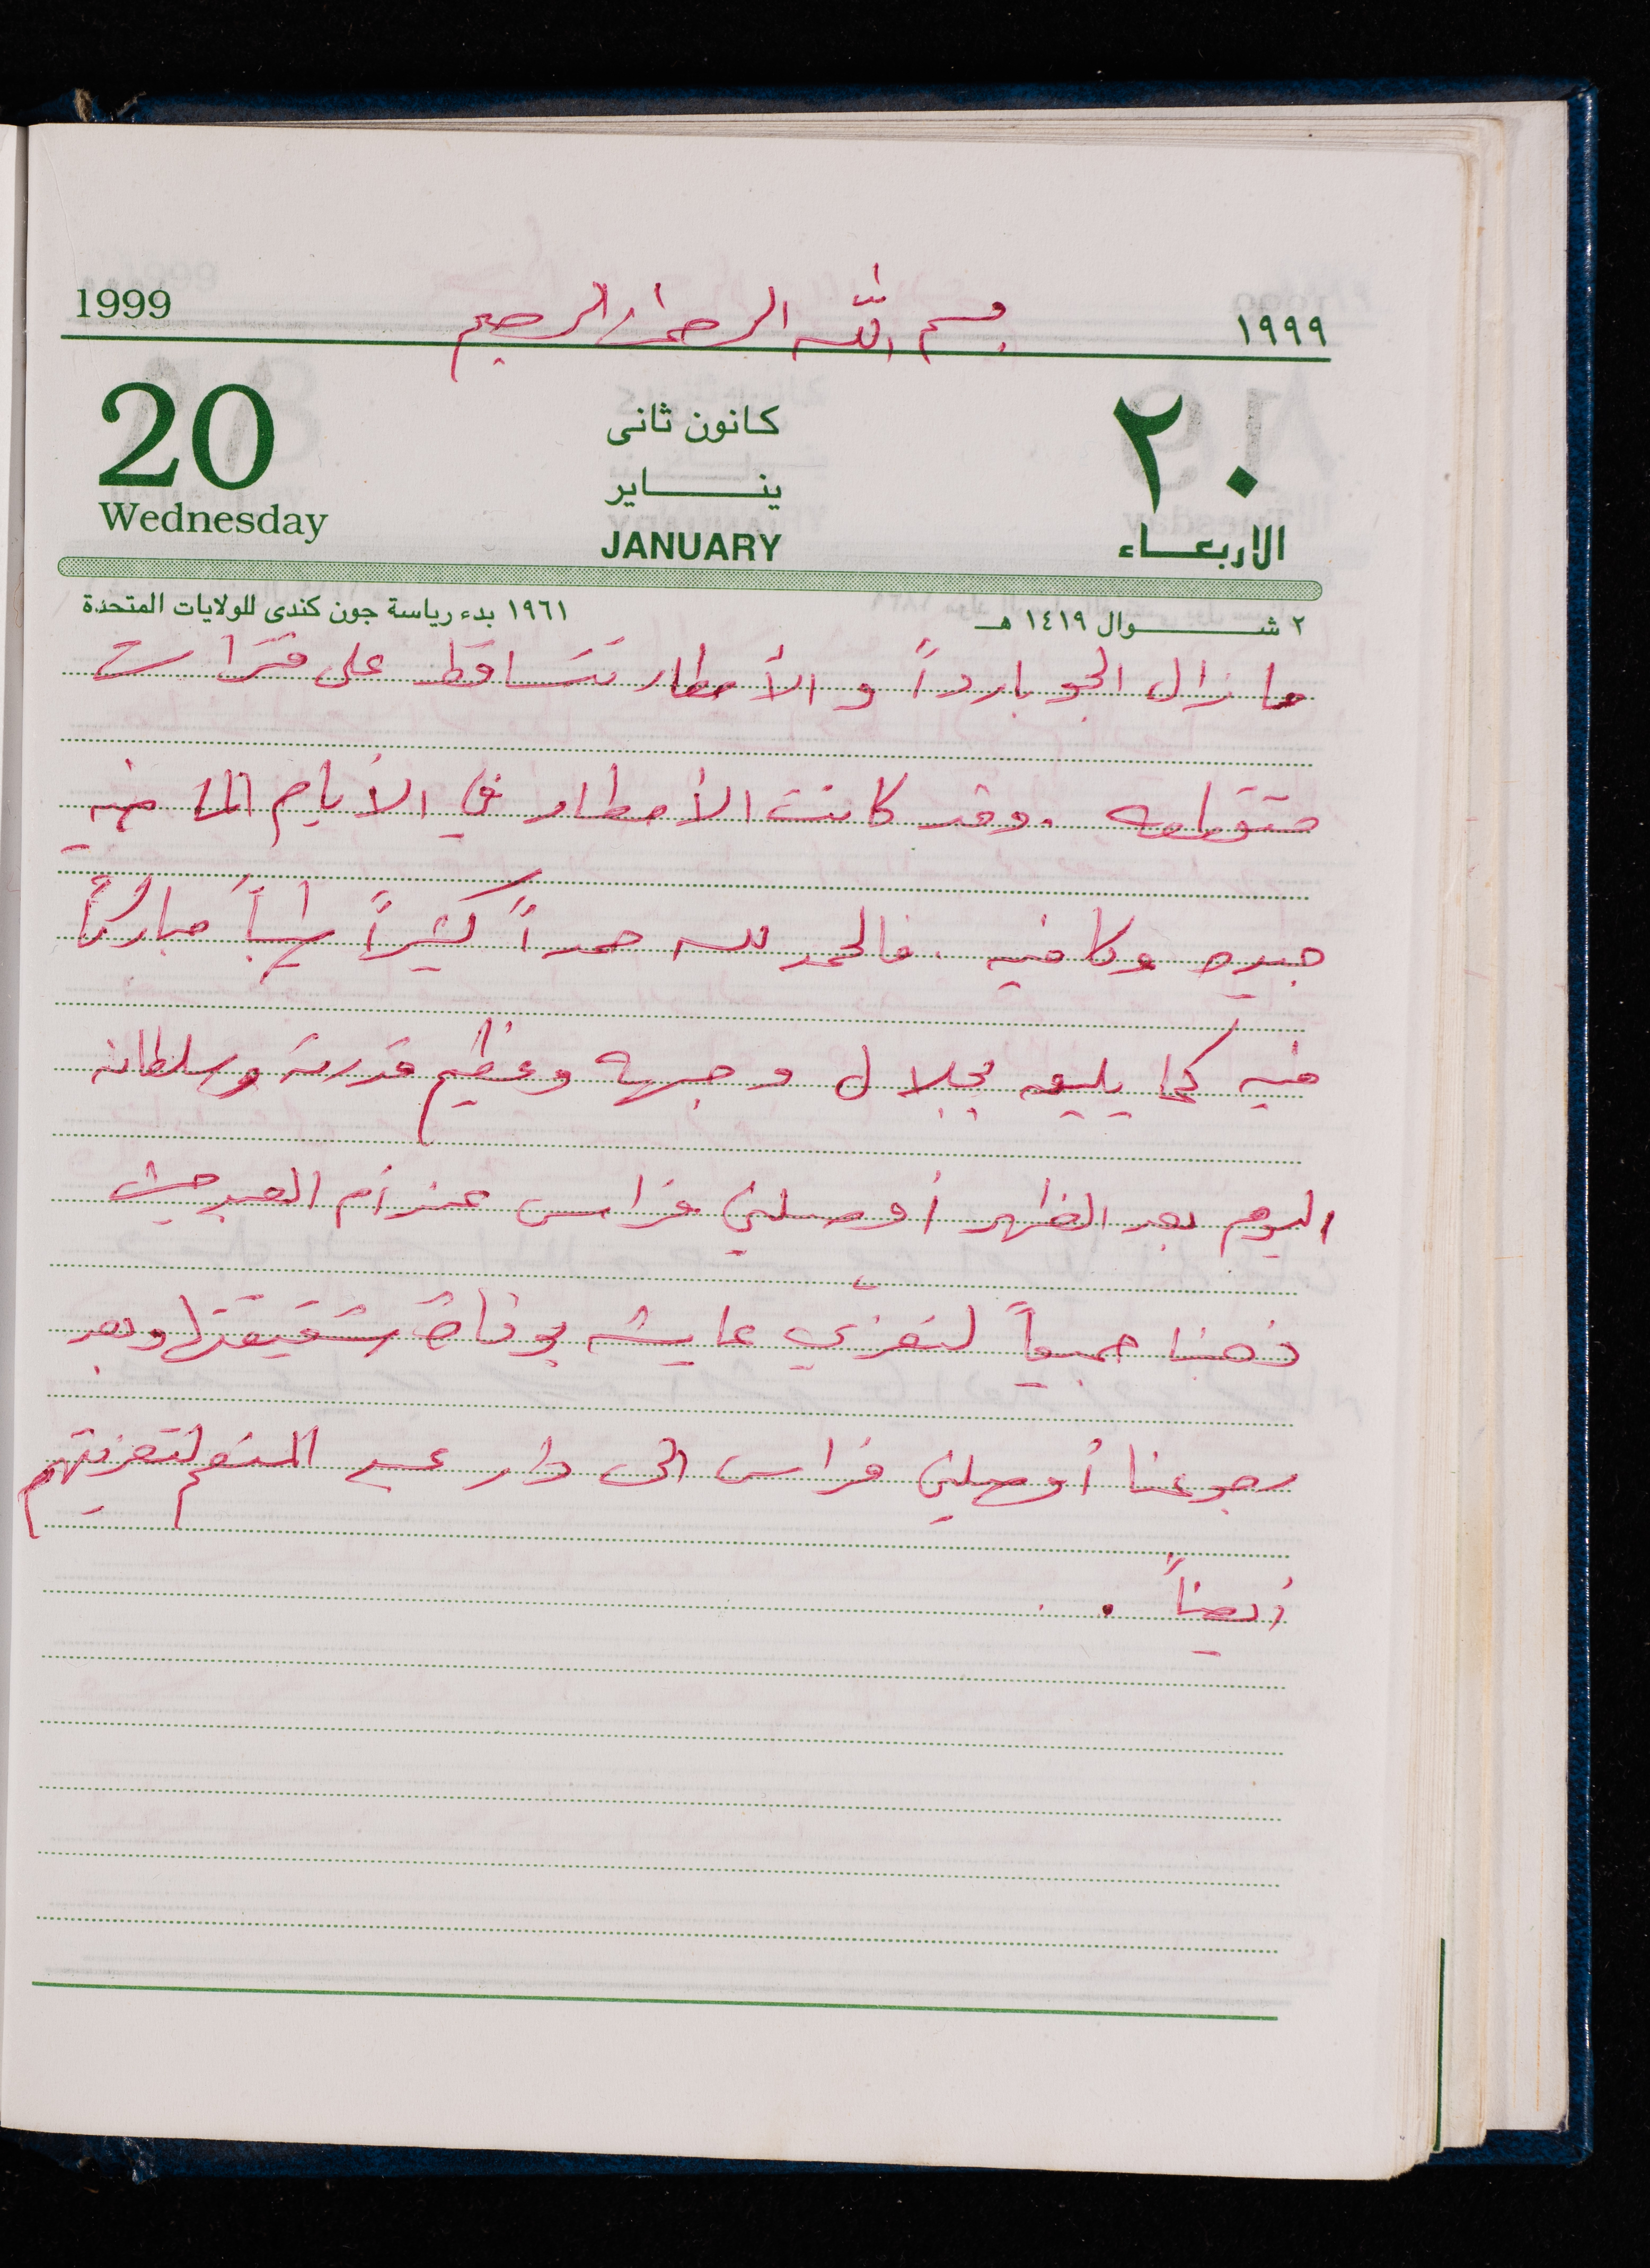 بسم الله الرحمن الرحيم
1999
١٩٩٩
20
كانون ثانى
٢٠
ينـــــاير
Wednesday
JANUARY
الاربعـــاء
٢ شـــــوال ١٤١٩ هـ
١٩٦١ بدء رياسة جون كندى للولايات المتحدة
ما زال الجو بارداً والأمطار تتساقط على فترات
متقطعه . وقد كانت الأمطار في الأيام الماضيه
جيده وكافيه . فالحمد لله حمداً كثيراً طيباً مباركاً
فيه كما يليق بجلال وجهه وعظيم قدرته وسلطانه
اليوم بعد الظهر أوصلني فراس عند أم العبد حيث
ذهبنا جميعاً لنعزي عايشه بوفاة شقيقتها وبعد
رجوعنا أوصلني فراس الى دار المنعم لتعزيتهم
أيضاً .